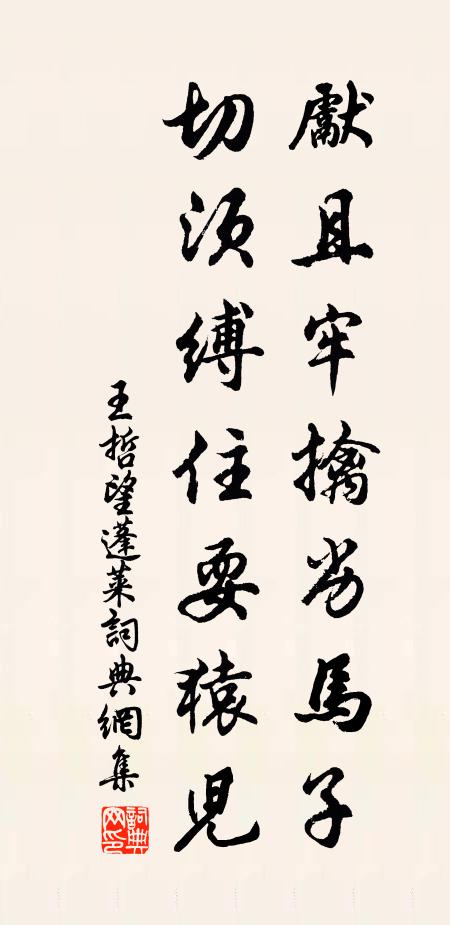 獻且牢擒劣馬子
切須縛住耍猿兒
王哲望蓬萊詞典網集
詞典网印